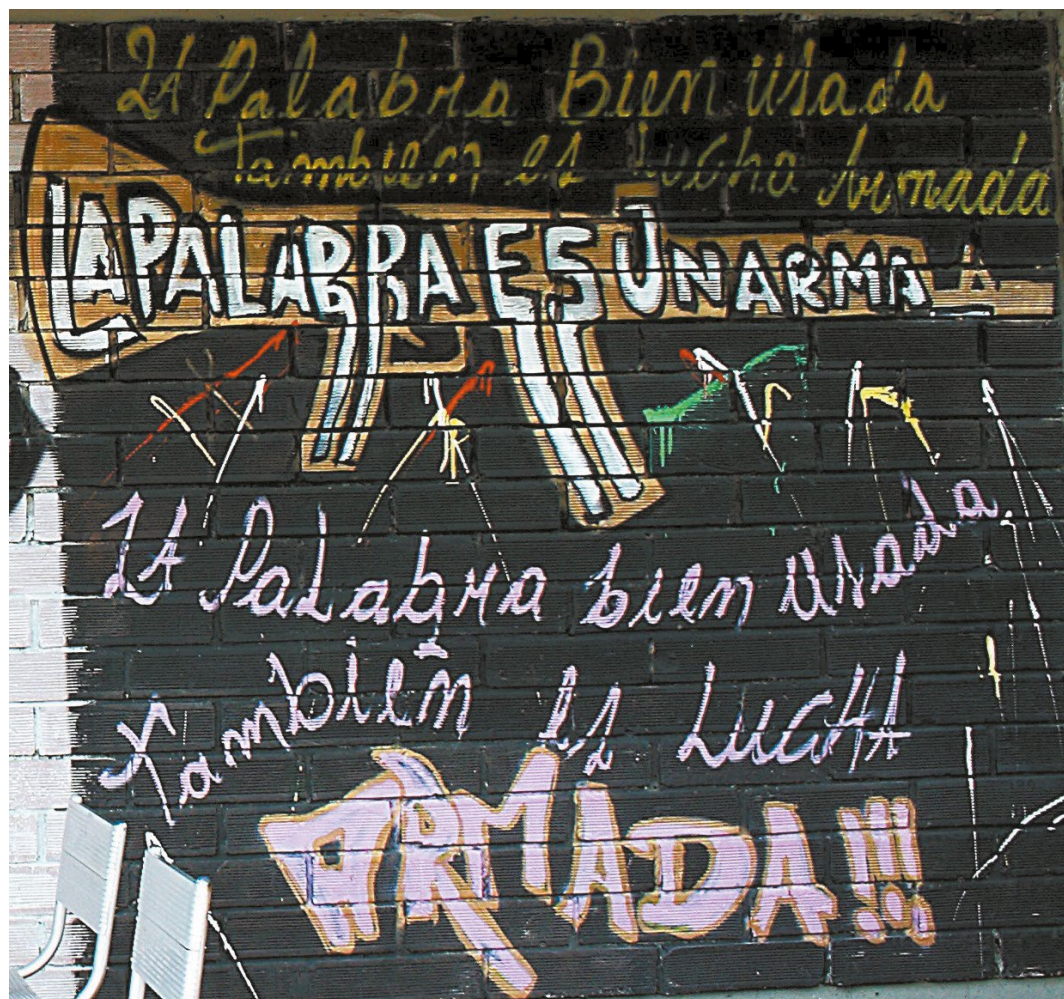 LA Palabra Bien Usada
También es Lucha Armada
LA PALABRA ES UN ARMA
LA PaLabra bien Usada
También es LUCHA
ARMADA!!!